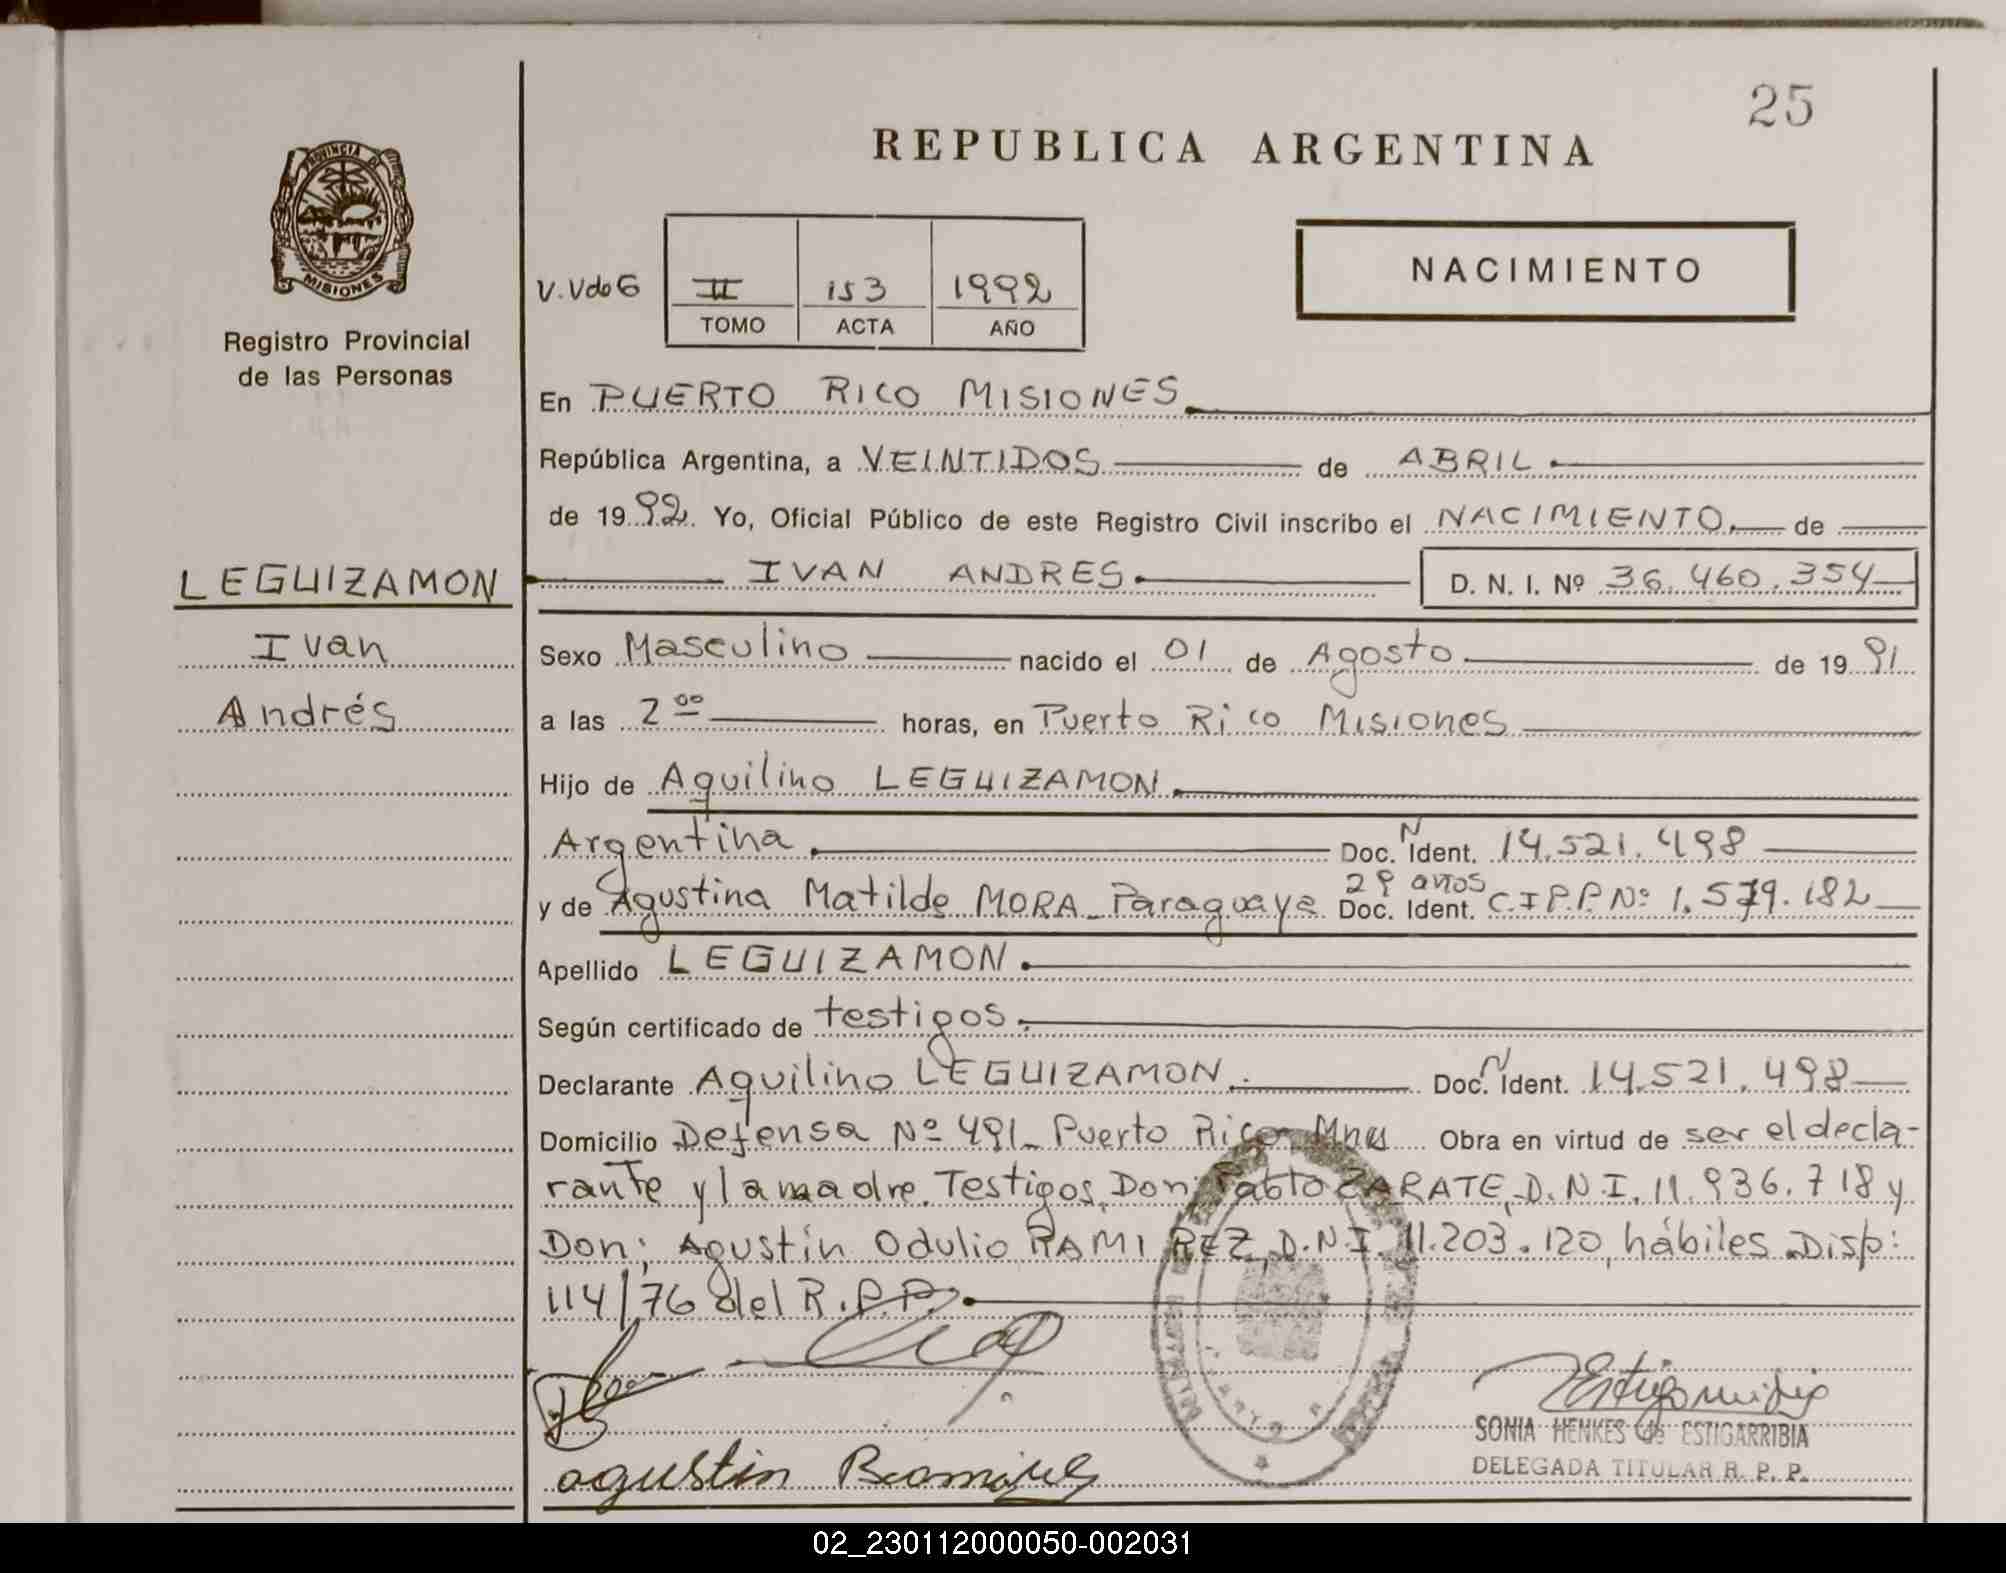 25
REPUBLICA ARGENTINA
PROVINCIA DE
MISIONES
Registro Provincial
de las Personas
V.Vdo6
II 153 1992
TOMO ACTA AÑO
NACIMIENTO
En PUERTO RICO MISIONES
República Argentina, a VEINTIDOS de ABRIL
de 1992. Yo, Oficial Público de este Registro Civil inscribo el NACIMIENTO de
LEGUIZAMON
IVAN ANDRES D. N. I. Nº 36.460.354
Ivan
Andrés
Sexo Masculino nacido el 01 de Agosto de 1991
a las 2 00 horas, en Puerto Rico Misiones
Hijo de Aquilino LEGUIZAMON
Argentina Doc. N Ident. 14.521.498
29 años
y de Agustina Matilde MORA_ Paraguaya Doc. Ident. C.I P.P. Nº 1.579.182
Apellido LEGUIZAMON
Según certificado de testigos
Declarante Aquilino LEGUIZAMON. Doc. N Ident. 14.521.498
Domicilio Defensa Nº 491_ Puerto Rico Mnes Obra en virtud de ser el decla-
rante y la madre. Testigos, Don; Pablo ZARATE, D.N.I. 11.936.718 y
Don; Agustín Odulio RAMIREZ, D.N.I. 11.203.120, hábiles Disp:
114/76 del R.P.P.
agustin Ramires
SONIA HENKES de ESTIGARRIBIA
DELEGADA TITULAR R. P. P.
02_230112000050-002031